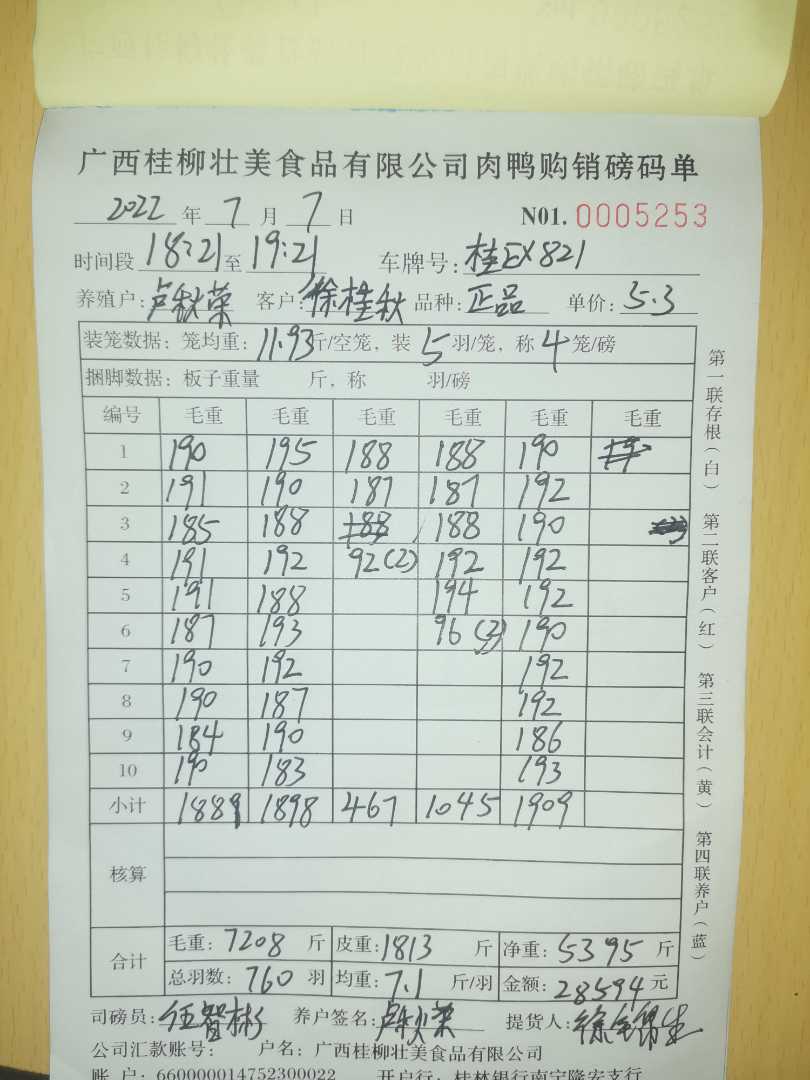 广西桂柳壮美食品有限公司肉鸭购销磅码单
2022 年 7 月 7 日 N01. 0005253
时间段 18:21 至 19:21 车牌号: 桂EX821
养殖户: 卢秋荣 客户: 徐桂秋 品种: 正品 单价: 5.3
装笼数据: 笼均重: 11.93 斤/空笼, 装 5 羽/笼, 称 4 笼/磅
捆脚数据: 板子重量 斤, 称 羽/磅
编号 毛重 毛重 毛重 毛重 毛重 毛重
1 190 195 188 188 190
2 191 190 187 187 192
3 185 188 188 188 190
4 191 192 92(2) 192 192
5 191 188 194 192
6 187 193 96(2) 190
7 190 192 192
8 190 187 192
9 184 190 186
10 190 183 193
小计 1889 1898 467 1045 1909
核算
合计
毛重: 7208 斤 皮重: 1813 斤 净重: 5395 斤
总羽数: 760 羽 均重: 7.1 斤/羽 金额: 28594 元
司磅员: 任智彬 养户签名: 卢秋荣 提货人:
公司汇款账号: 户名: 广西桂柳壮美食品有限公司
账 户: 660000014752300022 开户行: 桂林银行南宁隆安支行
第一联存根(白) 第二联客户(红) 第三联会计(黄) 第四联养户(蓝)